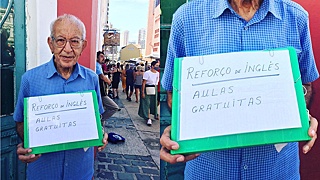 REFORÇO DE INGLÊS
AULAS
GRATUITAS
REFORÇO DE INGLÊS
AULAS
GRATUITAS